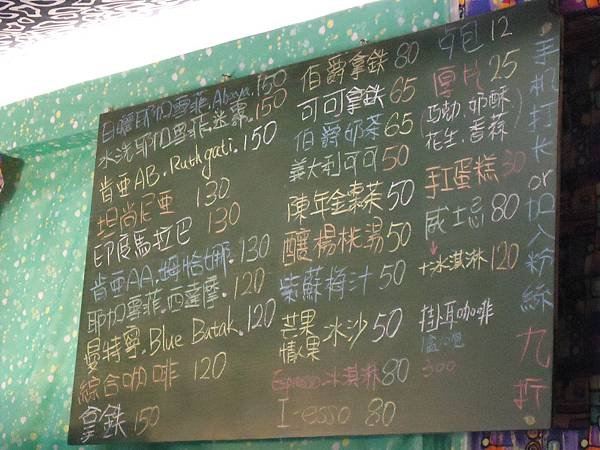 日曬耶加雪菲.Abaya.150
水洗耶加雪菲迷霧.150
肯亞AB.Ruthgati.150
坦尚尼亞 130
印度馬拉巴 130
肯亞AA.姆恰娜.130
耶加雪菲.西達摩.120
曼特寧.Blue Batak.120
綜合咖啡 120
拿鉄 150
伯爵拿鉄 80
可可拿鉄 65
伯爵奶茶 65
義大利可可 50
陳年金棗茶 50
釀楊桃湯 50
紫蘇梅汁 50
芒果
情人果 冰沙 50
Espresso冰淇淋 80
I-esso 80
包 12
厚片 25
巧勀、奶酥
花生、香蒜
手釭蛋糕 30
威士忌 80
+冰淇淋 120
掛耳咖啡
300
手机打卡or加入粉絲九折